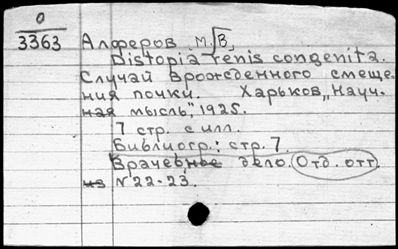 0
3363
Алферов М.В.
Distopia renis congenita.
Случай врожденного смеще-
ния почки. Харьков, „Науч-
ная мысль", 1925.
7 стр. с илл.
Библиогр.: стр. 7.
Врачебное дело. Отд. отт.
из №22-23.